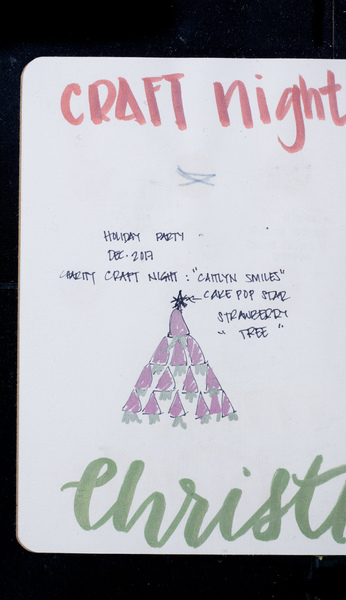 CRAFT night
HOLIDAY PARTY
DEC. 2017
CHARITY CRAFT NIGHT : "CAITLYN SMILES"
CAKE POP STAR
STRAWBERRY
" TREE "
Christ